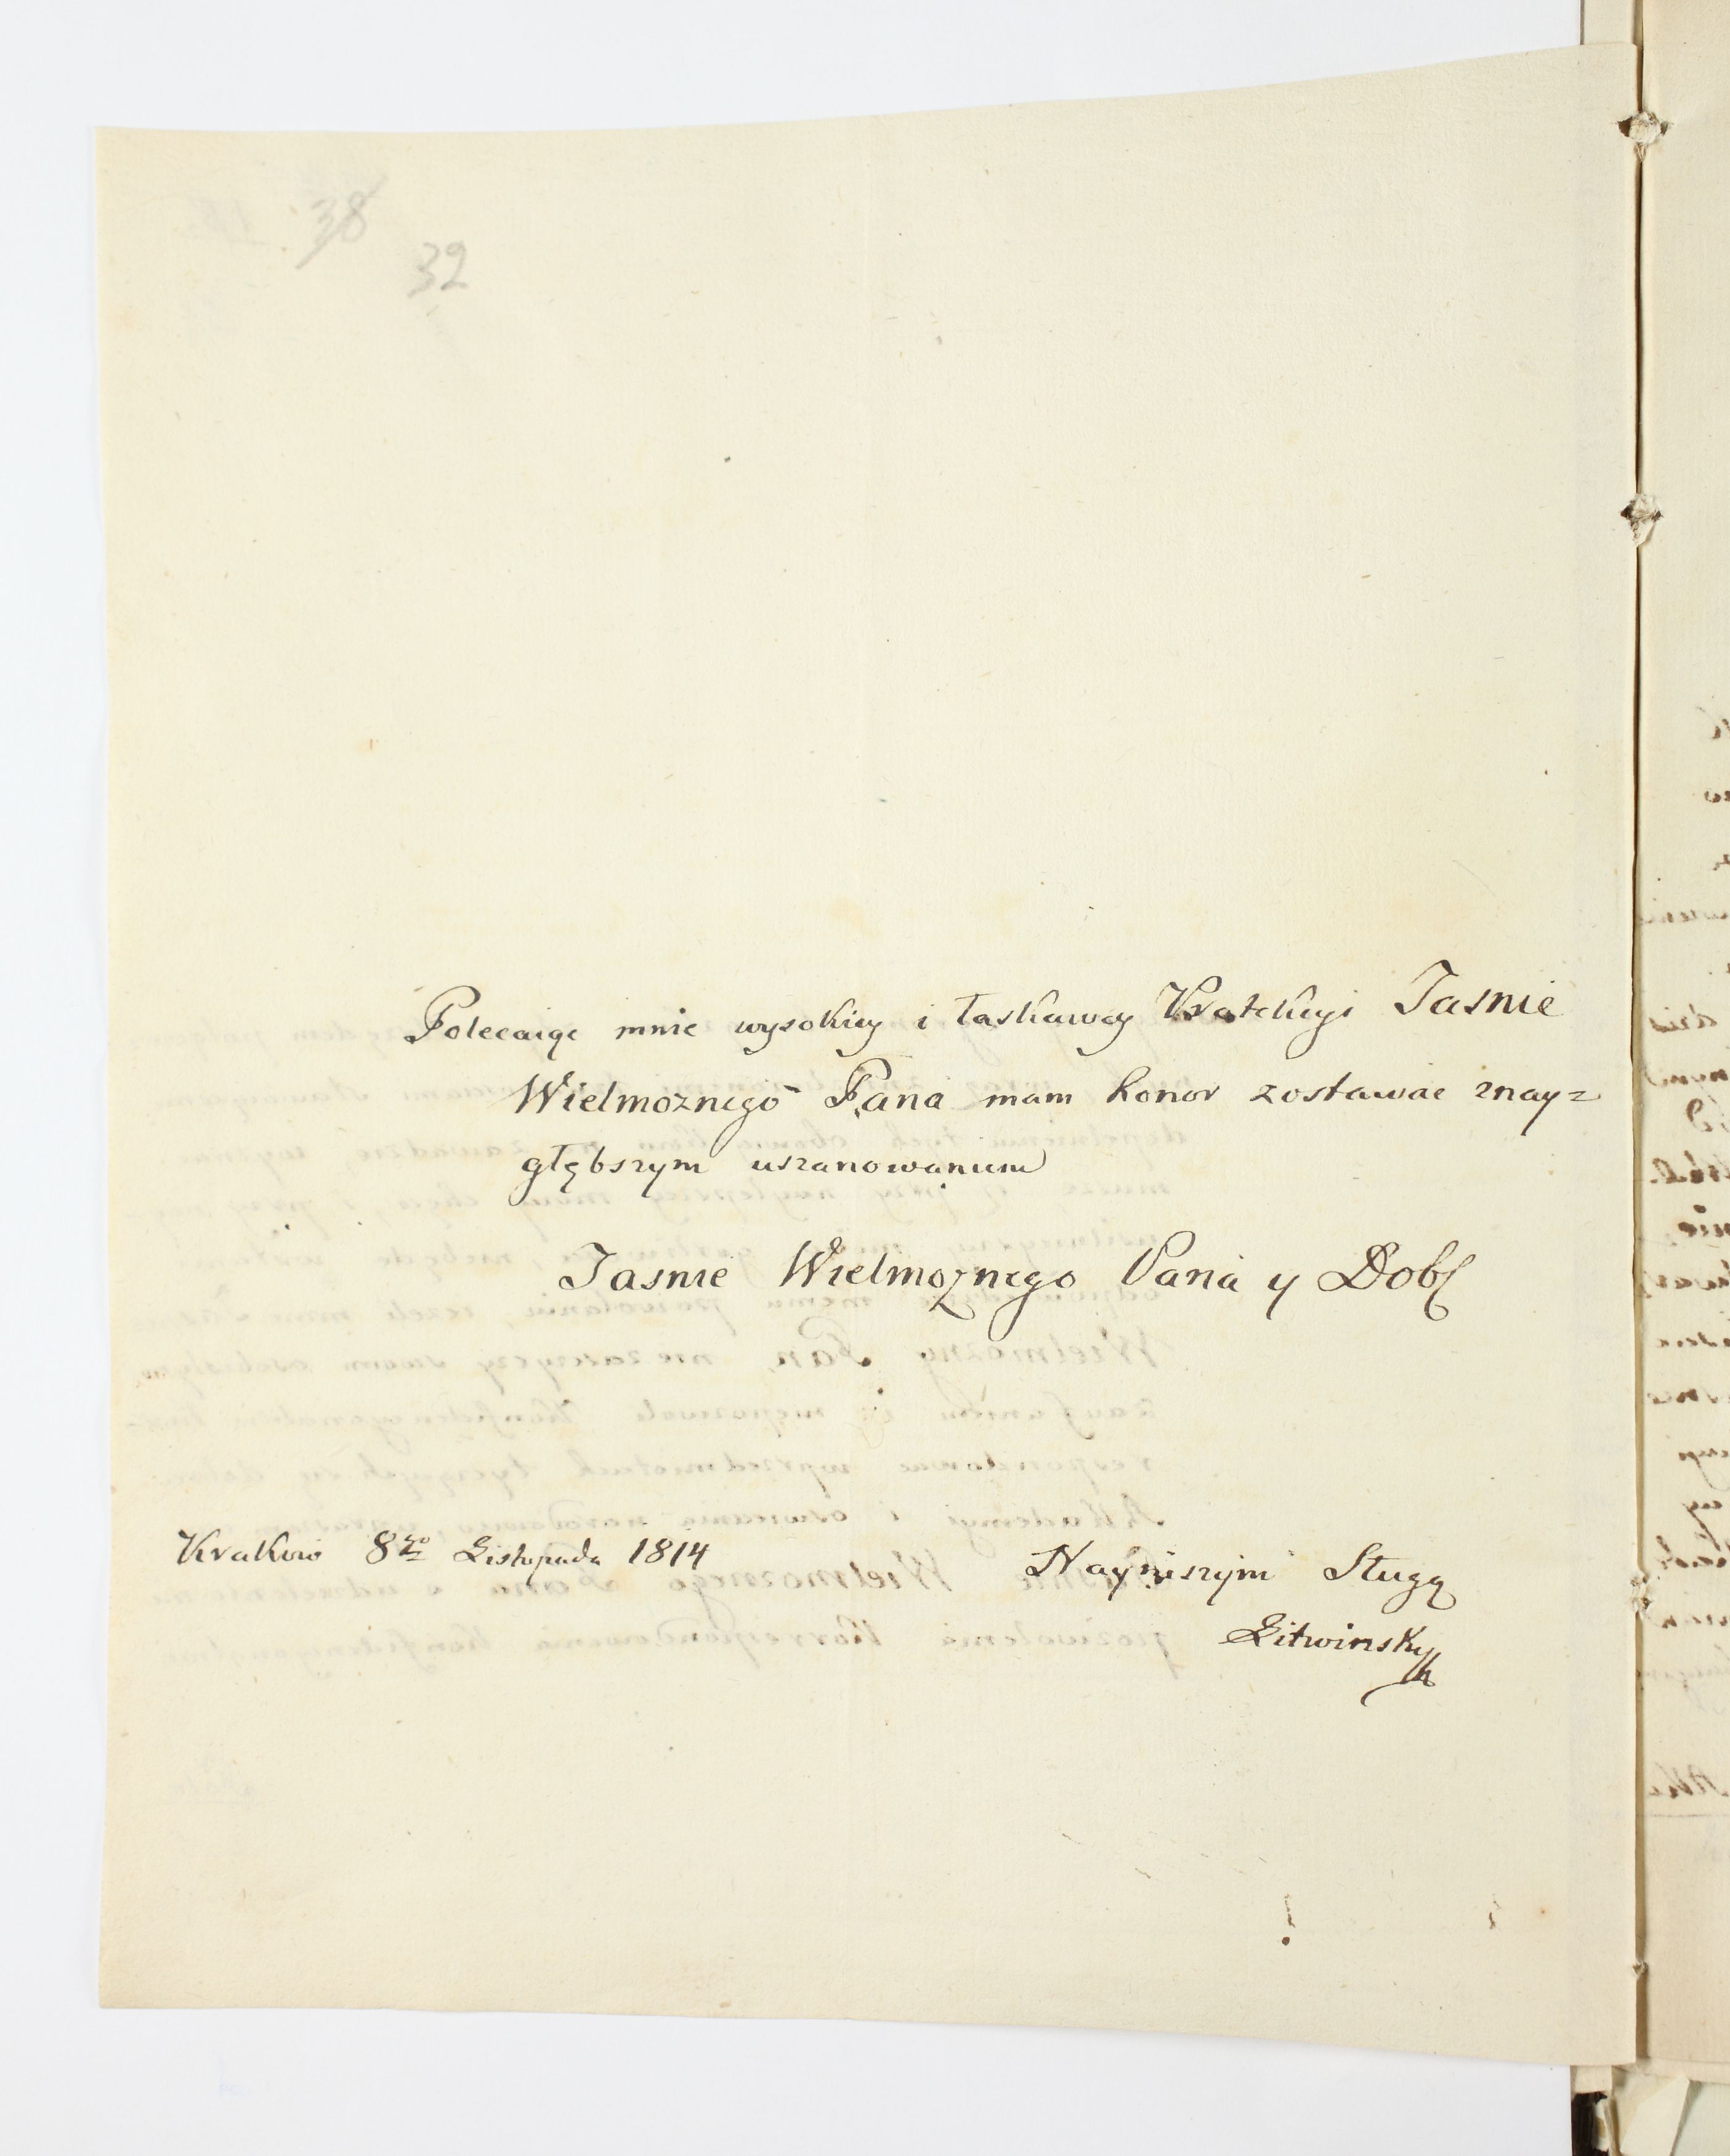 38
32
Polecaiąc mnie wysokiey i łaskawey Jasnie
Wielmoznego Pana mam honor zostawac znay=
głębszym uszanowaniem
Jasnie Wielmoznego Pana y Dob
Krakow 8go Listopada 1814
Nayniszym Sługą
Litwinsky